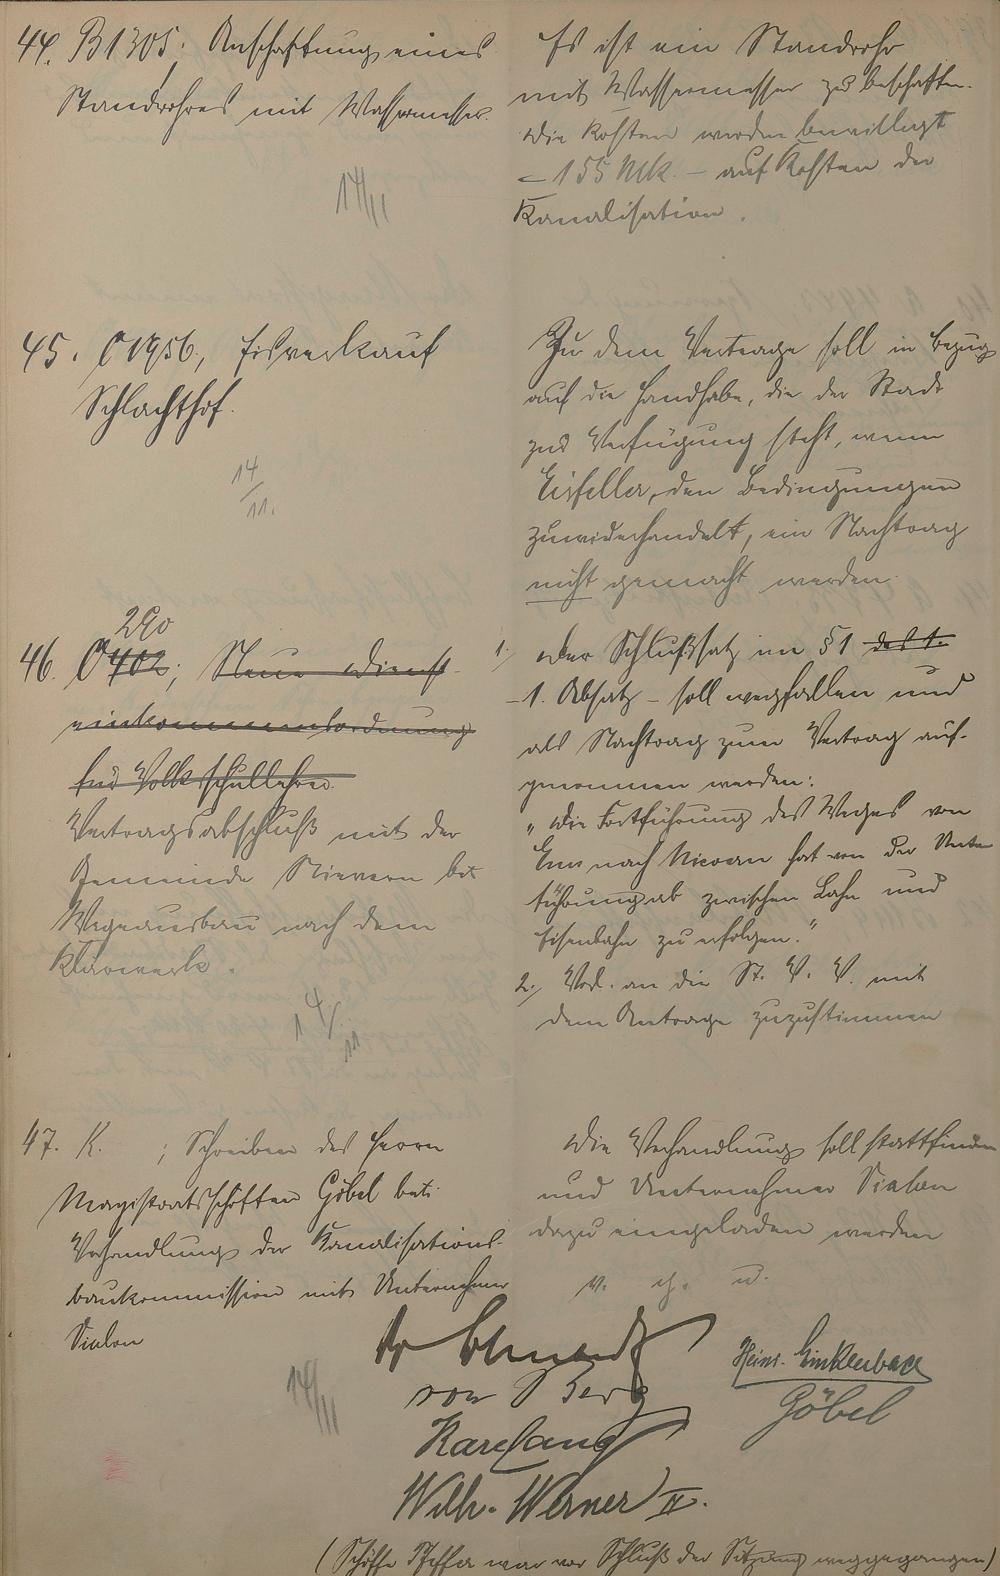 44. B 1305; Anschaffung eines
Standrohres mit Wassermesser.
14/11
Es ist ein Standrohr
mit Wassermesser zu beschaffen.
Die Kosten werden bewilligt
– 155 Mk. – auf Kosten der
Kanalisation.
45. C 1956, Eisverkauf
Schlachthof.
14/11.
Zu dem Vertrage soll in Bezug
auf die Handhabe, die der Stadt
zur Verfügung steht, wenn
Eisfeller, den Bedingungen
zuwiderhandelt, ein Nachtrag
nicht gemacht werden.
290
46. C 402; Neue Dienst-
einkommensordnung
für Volksschullehrer.
Vertragsabschluß mit der
Gemeinde Nievern bei
Wegeausbau nach dem
Klärwerk.
14/11
1., Der Schlußsatz im §1 des 1.
– 1. Absatz – soll wegfallen und
als Nachtrag zum Vertrag auf-
genommen werden:
„Die Fortführung des Weges von
Ems nach Nievern hat von der Unter-
führung ab zwischen Lahn und
Eisenbahn zu erfolgen.“
2., Vorl. an die St. V. V. mit
dem Antrage zuzustimmen
47. K. ; Schreiben des Herrn
Magistratsschöffen Göbel betr.
Verhandlung der Kanalisations-
baukommission mit Unternehmer
Sialon
14/11
Die Verhandlung soll stattfinden
und Unternehmer Sialon
dazu eingeladen werden
v. g. u.
von Berg
Karl Lang
Wilh. Werner II.
Heinr. Linkenbach
Göbel
(Schöffe Pfeffer war vor Schluß der Sitzung weggegangen)